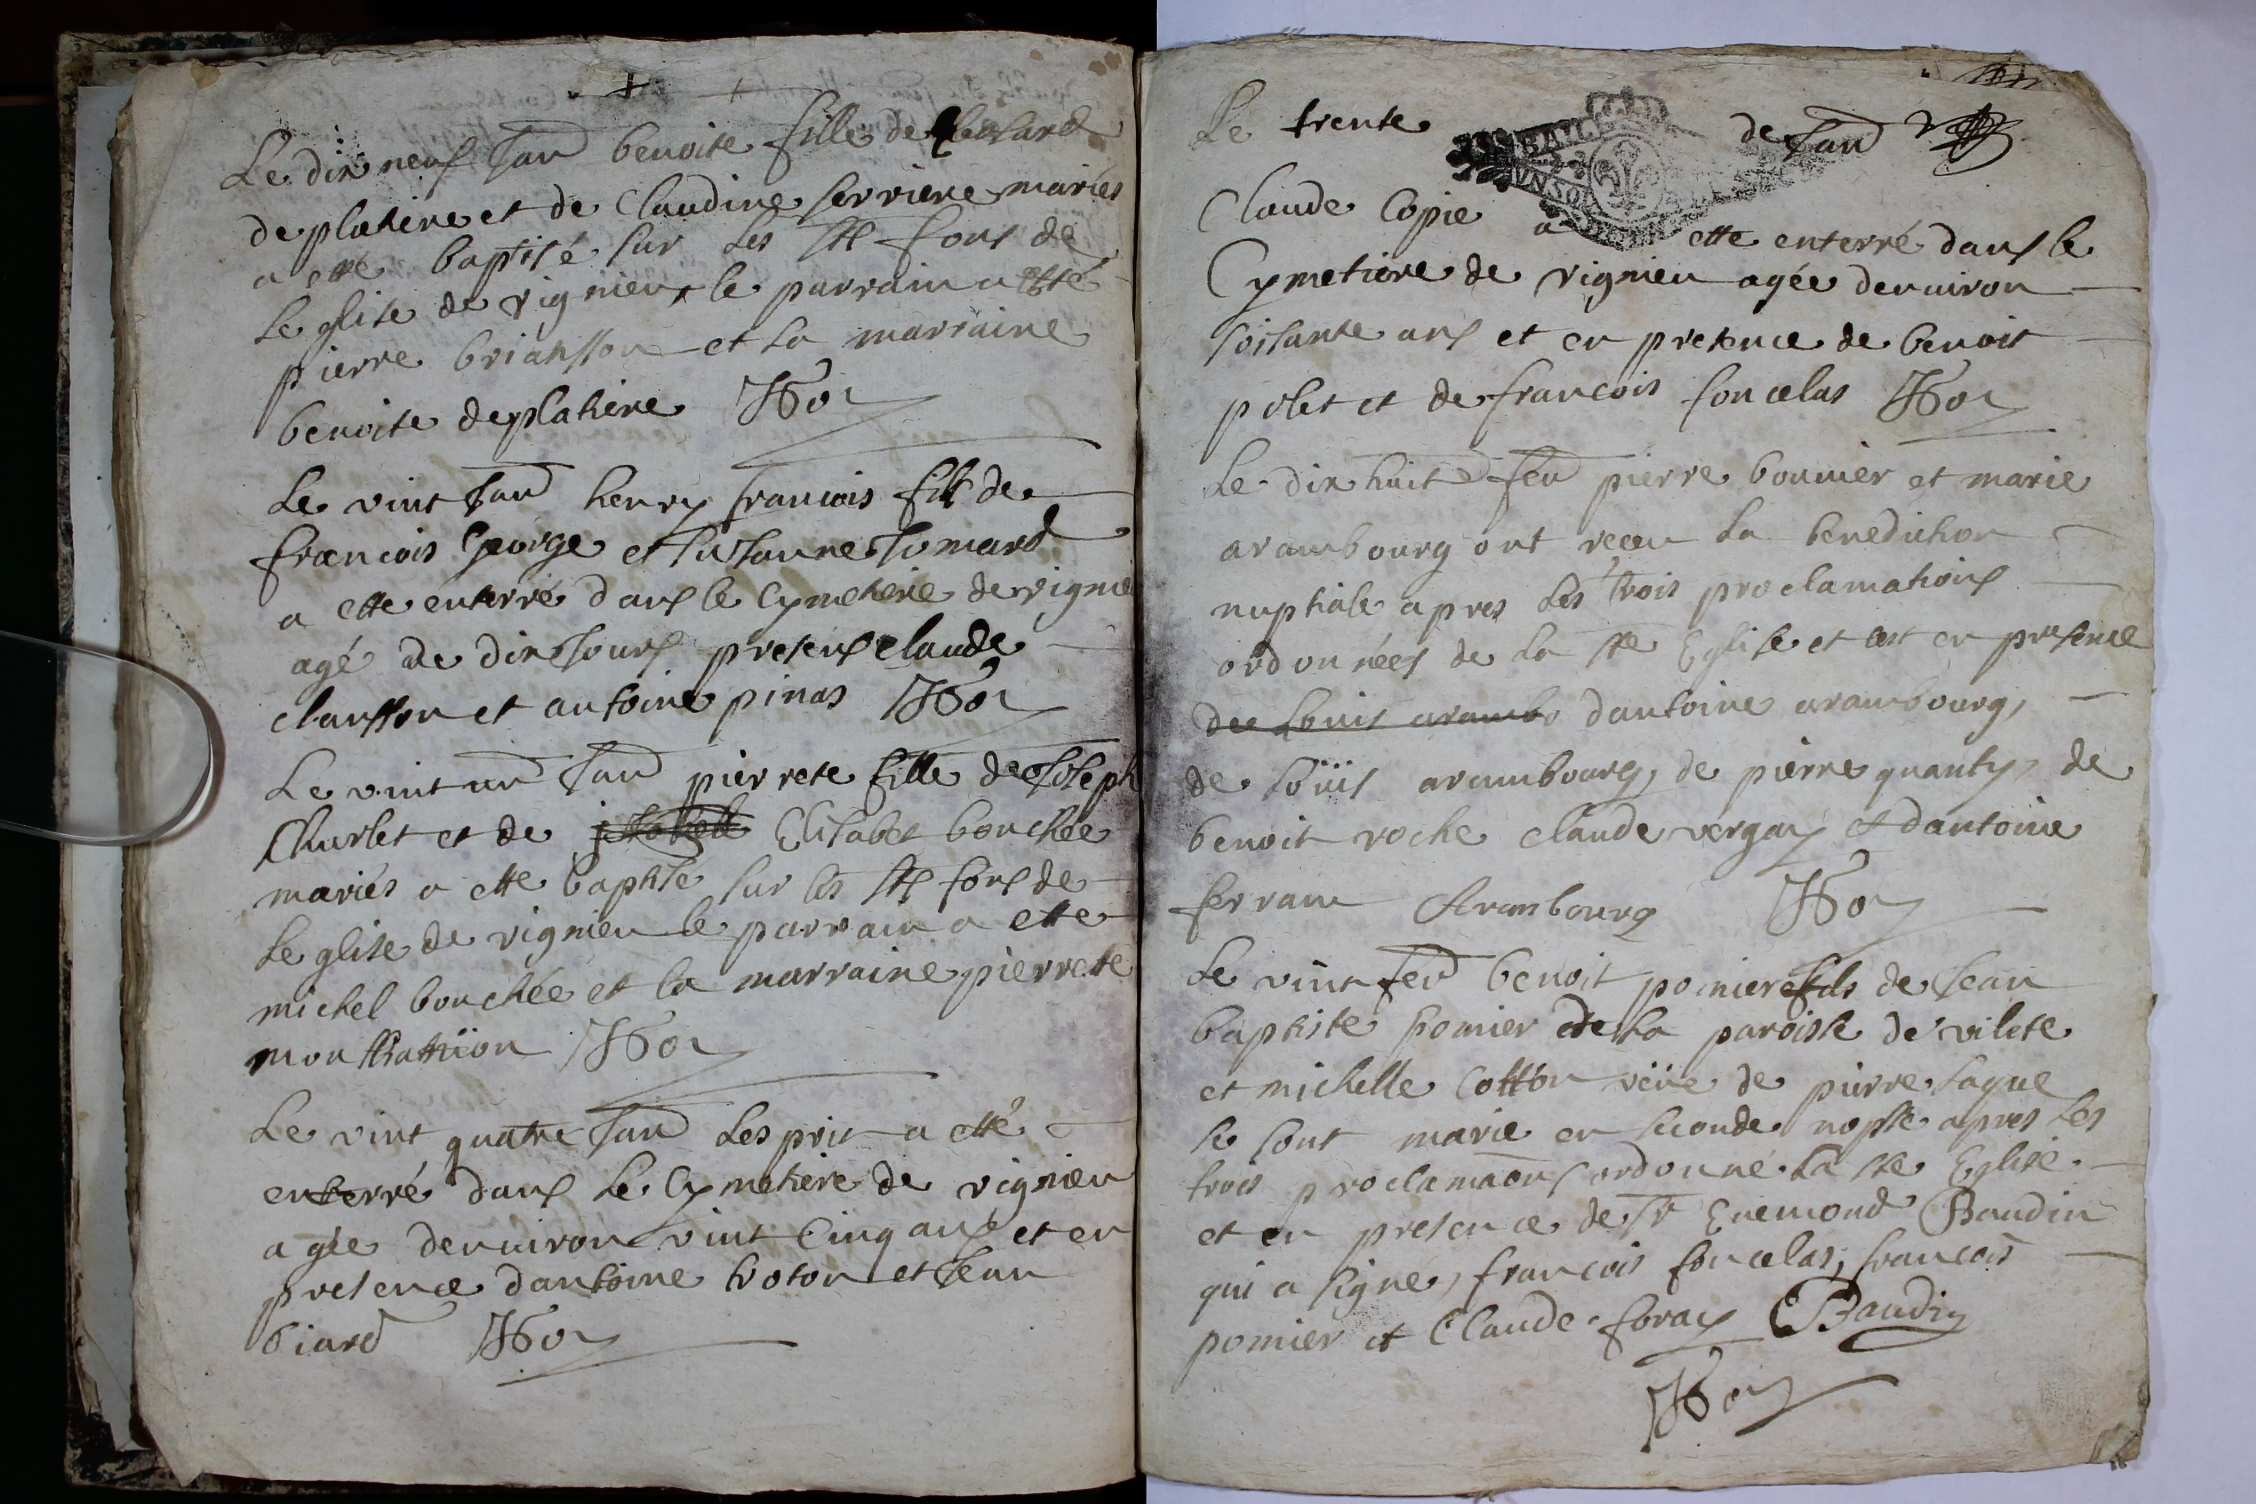 Le dix neuf Janv benoite fille de
de platiere et de Claudine serriere mariés
a etté baptisé sur les Sts fons de
le glise de vignieu le parrain a etté
pierre briansson et la marraine
benoite deplatiere
Le vint Janv henry francois fils de
francois George et susanne Jumard
a ette enterré dans le Cymetiere de vignieu
agé de dix Jours presens claude
clansson et antoine pinas
Le vint un Janv pierrete fille de Joseph
Charlet et de Elisabet bouchée
mariés a ette baptisé sur les Sts fons de
le glise de vignieu le parrain a ette
michel bouchée et la marraine pierrete
Le vint quatre Janv Lesprit a etté
enterré dans le Cymetiere de vignieu
agée denviron vint Cinq ans et en
presence dantoine troton et Jean
biard
Le trente de Janv
Claude Copie a ette enterré dans le
Cymetiere de vignieu agée denviron
soisante ans et en presence de benoit
polet et de francois foncelas
Le dix huit fev pierre bonnier et marie
arambourg ont receu la benediction
nuptiale apres les trois proclamations
ordonnées de la ste Eglise et cest en presence
de Louis arambo dantoine arambourg,
de Loüis arambourg, de pierre quanty, de
benoit roche claude vergay et dantoine
ferram Arambourg
Le vint fev benoit pomier fils de Jean
baptiste pomier de la paroisse de vilete
et michelle Cotton veüve de pierre Laque
se sont marie en seconde nopsse apres les
trois proclamaons ordonné La ste Eglise
et en presence de Sr Enemond Baudin
qui a signé, francois foncelas, francois
pomier et Claude foray EBaudin